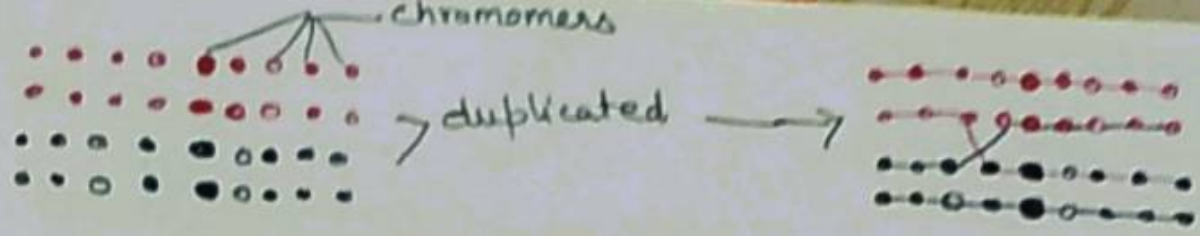 chromomers
duplicated